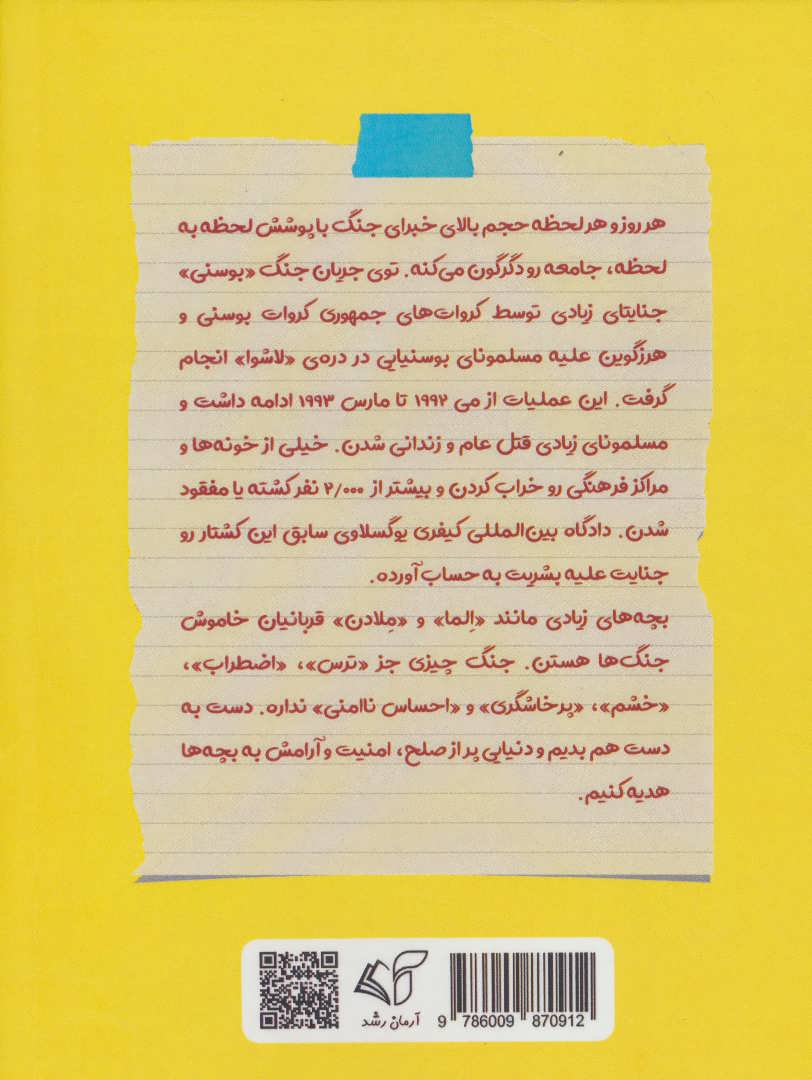 هر روز و هر لحظه حجم بالای خبرای جنگ با پوشش لحظه به
لحظه، جامعه رو دگرگون می‌کنه. توی جریان جنگ «بوسنی»
جنایتای زیادی توسط کروات‌های جمهوری کروات بوسنی و
هرزگوین علیه مسلمونای بوسنیایی در دره‌ی «لاشوا» انجام
گرفت. این عملیات از می ۱۹۹۲ تا مارس ۱۹۹۳ ادامه داشت و
مسلمونای زیادی قتل عام و زندانی شدن. خیلی از خونه‌ها و
مراکز فرهنگی رو خراب کردن و بیشتر از ۲/۰۰۰ نفر کشته یا مفقود
شدن. دادگاه بین‌المللی کیفری یوگسلاوی سابق این کشتار رو
جنایت علیه بشریت به حساب آورده.
بچه‌های زیادی مانند «اِلما» و «مِلادن» قربانیان خاموش
جنگ‌ها هستن. جنگ چیزی جز «ترس»، «اضطراب»،
«خشم»، «پرخاشگری» و «احساس ناامنی» نداره. دست به
دست هم بدیم و دنیایی پر از صلح، امنیت و آرامش به بچه‌ها
هدیه کنیم.
آرمان رشد
9 786009 870912